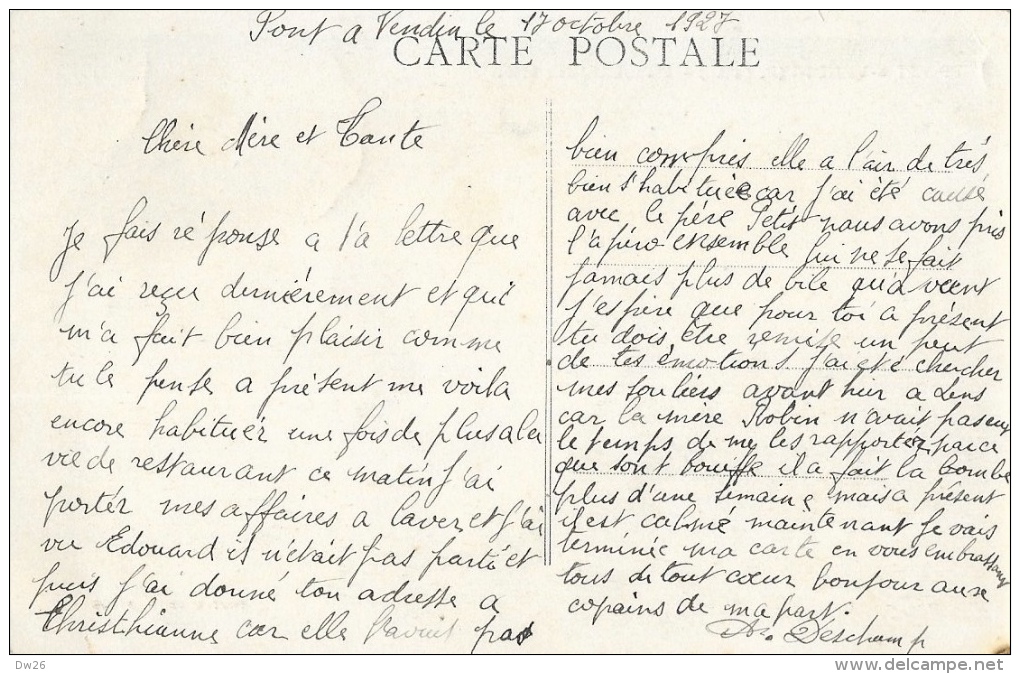 Pont a Vendin le 17 octobre 1927
CARTE POSTALE
Chère Mère et Tante
Je fais réponse a ta lettre que
j'ai reçu dernièrement et qui
m'a fait bien plaisir comme
tu le pense a présent me voila
encore habituér une fois de plus a la
vie de restaurant ce matin j'ai
portér mes affaires a laver et j'ai
vu Edouard il n'était pas partie et
puis j'ai donné ton adresse a
Christhianne car elle l'avait pas
bien compris elle a l'air de très
bien s'habituée car j'ai été causé
avec le père Petit nous avons pris
l'apéro ensemble lui ne se fait
jamais plus de bile qu'a
j'espère que pour toi a présent
tu dois être remise un peut
de tes émotions j'ai été chercher
mes souliers avant hier a Lens
car la mère Robin n'avait pas eu
le temps de me les rapporter parce
que sont bouiffe il a fait la bombe
plus d'une semaine mais a présent
il est calmé maintenant je vais
terminée ma carte en vous embrassant
tous de tout cœur bonjour aux
copains de ma part.
Deschamp
Dw26
delcampe.net